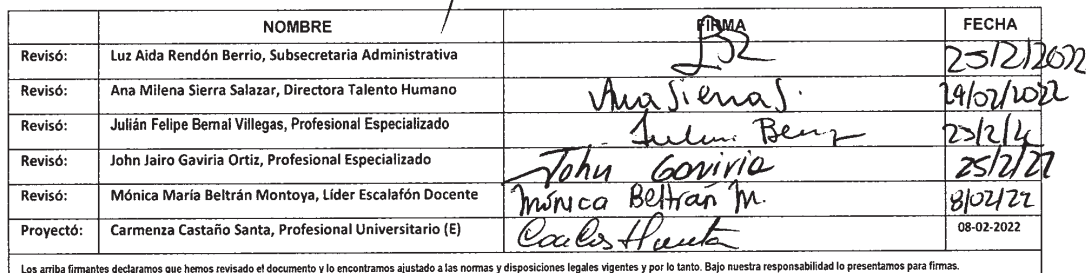 NOMBRE FIRMA FECHA
Revisó: Luz Aida Rendón Berrio, Subsecretaria Administrativa 25/2/2022
Revisó: Ana Milena Sierra Salazar, Directora Talento Humano Ana Sierra S. 24/02/2022
Revisó: Julián Felipe Bernal Villegas, Profesional Especializado
Revisó: John Jairo Gaviria Ortiz, Profesional Especializado John Gaviria 25/2/22
Revisó: Mónica María Beltrán Montoya, Líder Escalafón Docente Mónica Beltrán M. 8/02/22
Proyectó: Carmenza Castaño Santa, Profesional Universitario (E) 08-02-2022
Los arriba firmantes declaramos que hemos revisado el documento y lo encontramos ajustado a las normas y disposiciones legales vigentes y por lo tanto. Bajo nuestra responsabilidad lo presentamos para firmas.